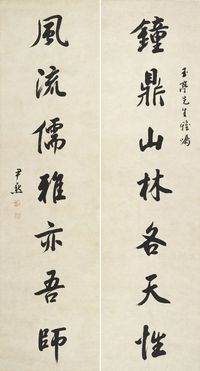 玉亭先生雅屬
鐘鼎山林各天性
風流儒雅亦吾師
尹默